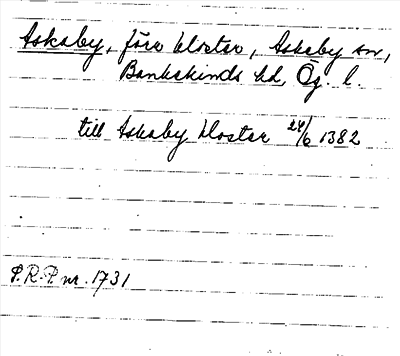 Askaby, förr kloster, Askaby sn,
Bankekinds hd, Ög. l.
till Askaby kloster 24/6 1382
P.R.P. nr. 1731